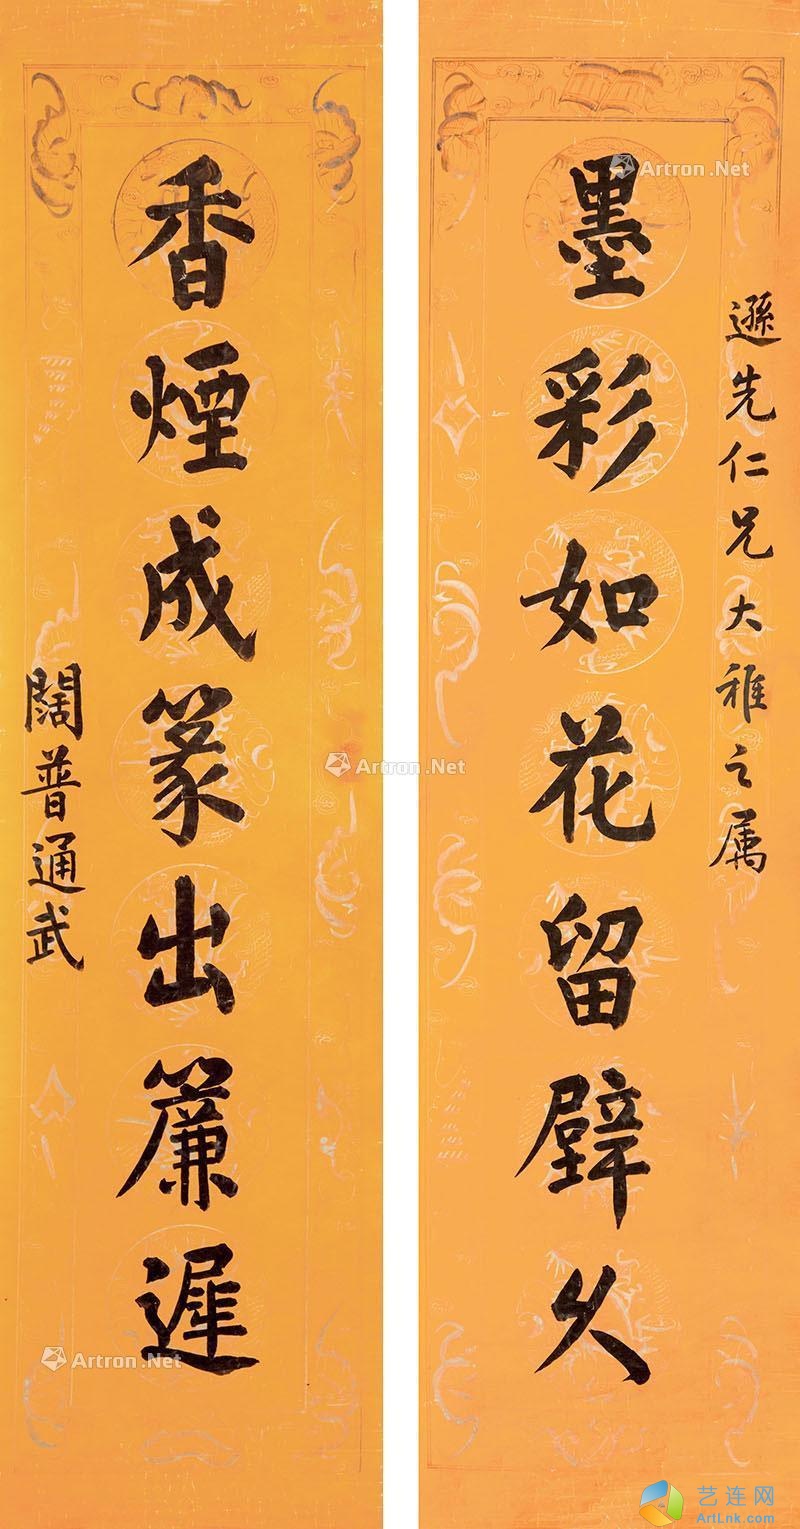 遜先仁兄大雅之属
墨彩如花留壁久
香煙成篆出簾遲
闊普通武
Artron.Net
Artron.Net
Artron.Net
Artron.Net
Artron.Net
艺连网
ArtLnk.com